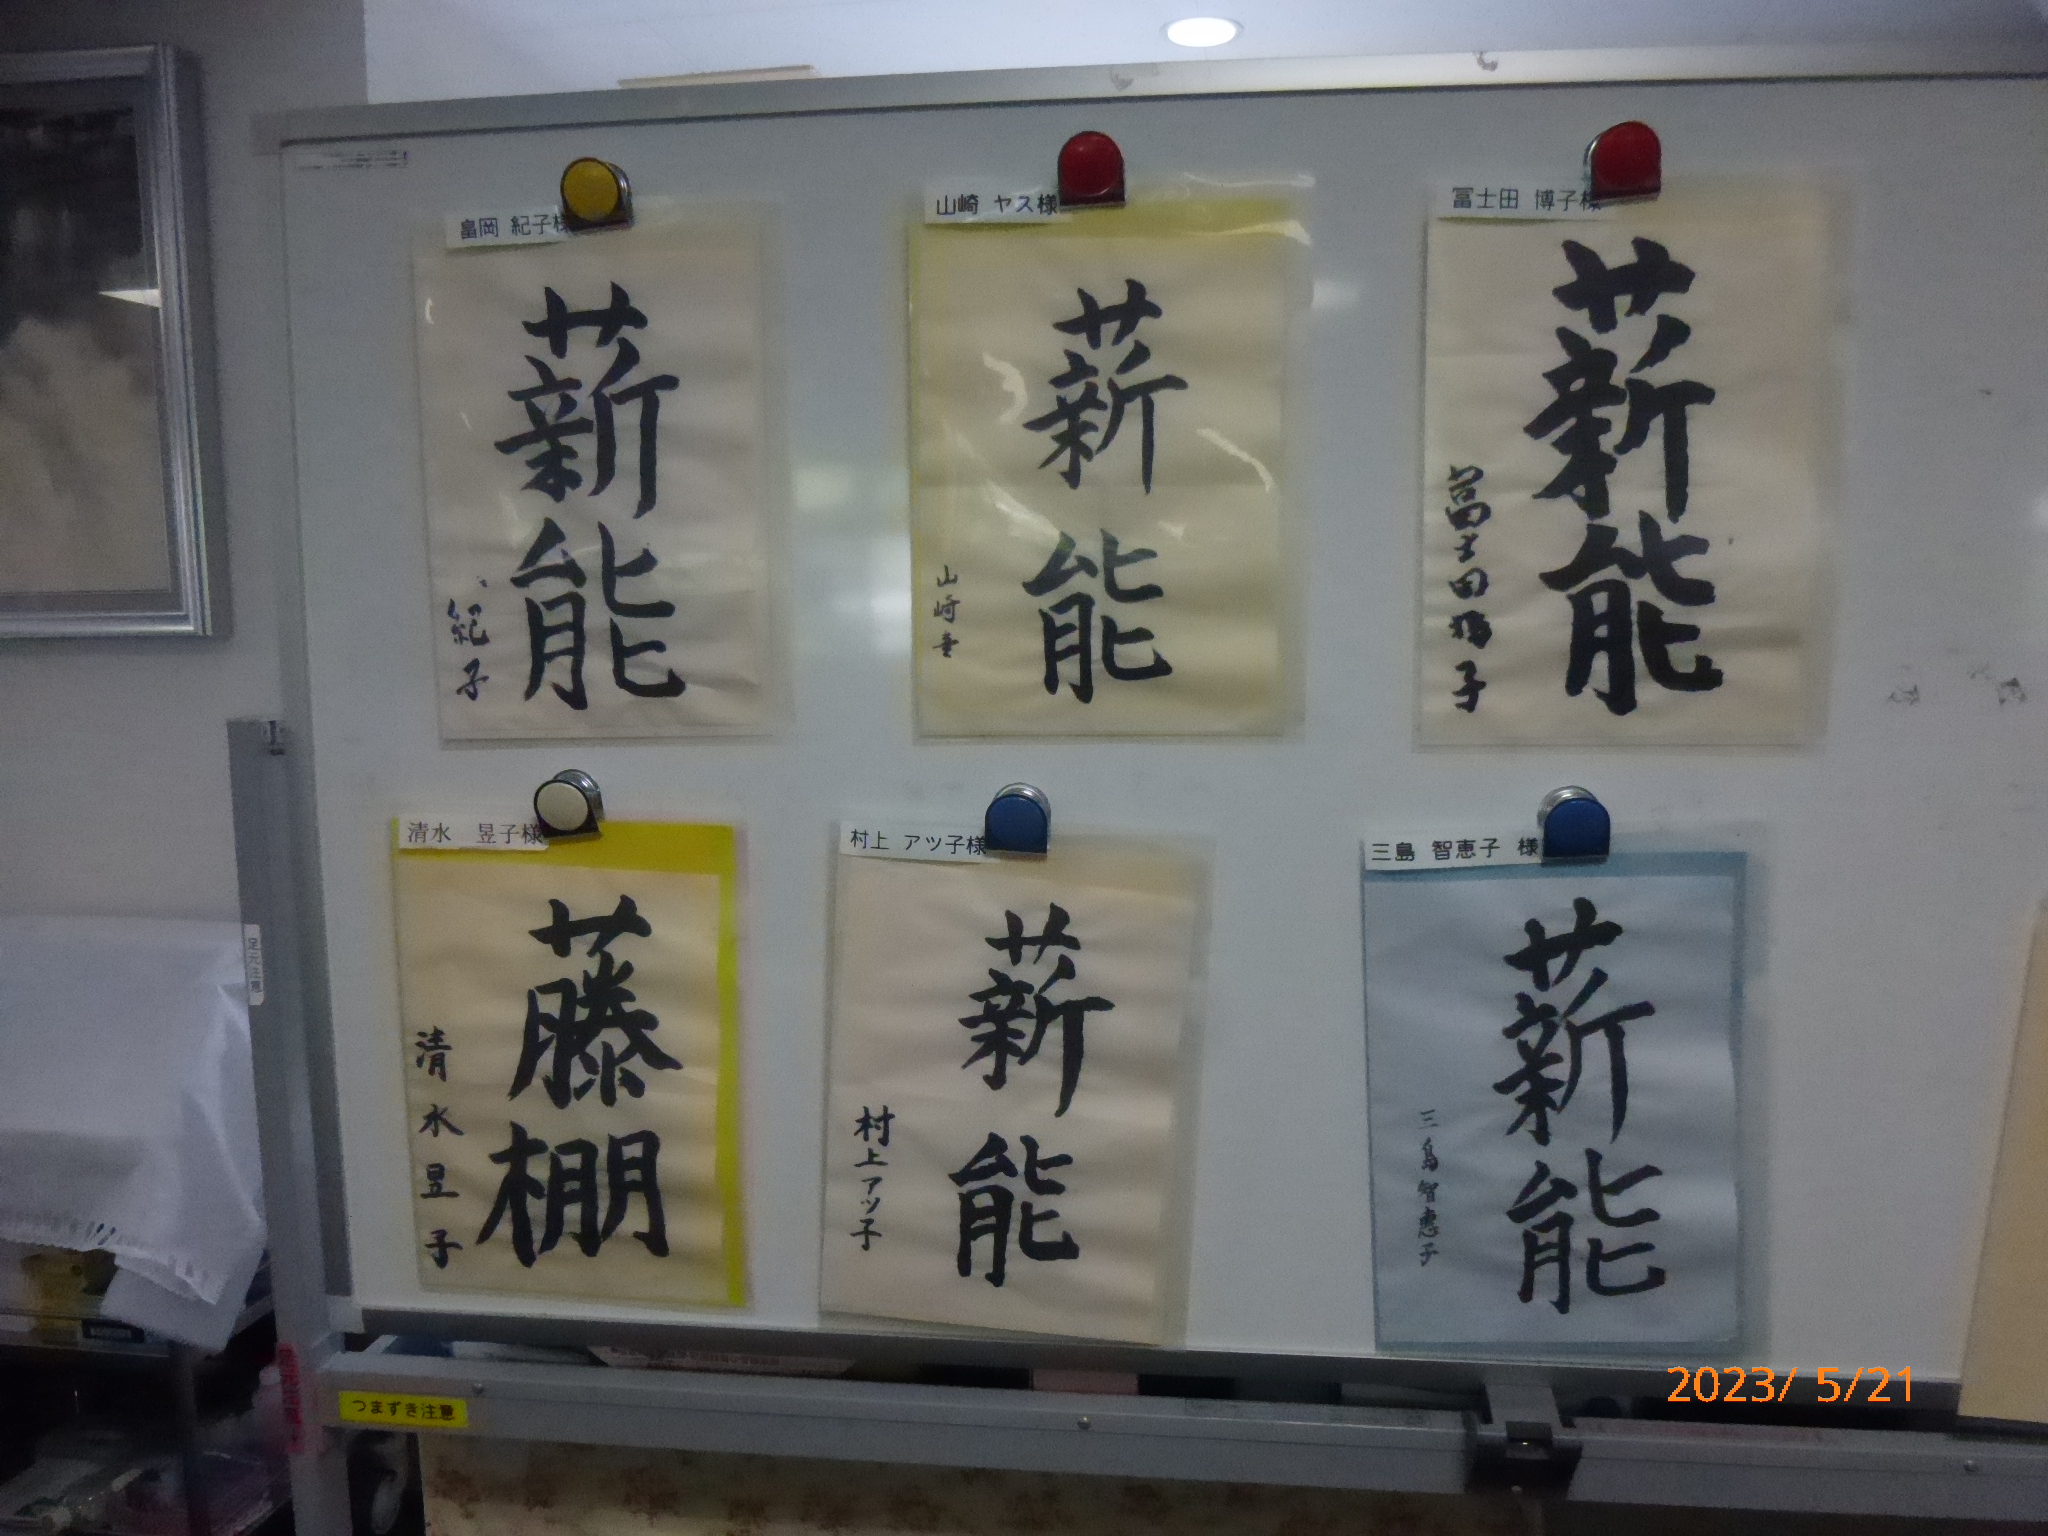 畠岡 紀子様
薪能
紀子
山崎 ヤス様
薪能
山崎
冨士田 博子様
薪能
冨士田博子
清水 昱子様
藤棚
清水昱子
村上 アツ子様
薪能
村上アツ子
三島 智恵子 様
薪能
三島智恵子
足元注意
つまずき注意
2023/ 5/21